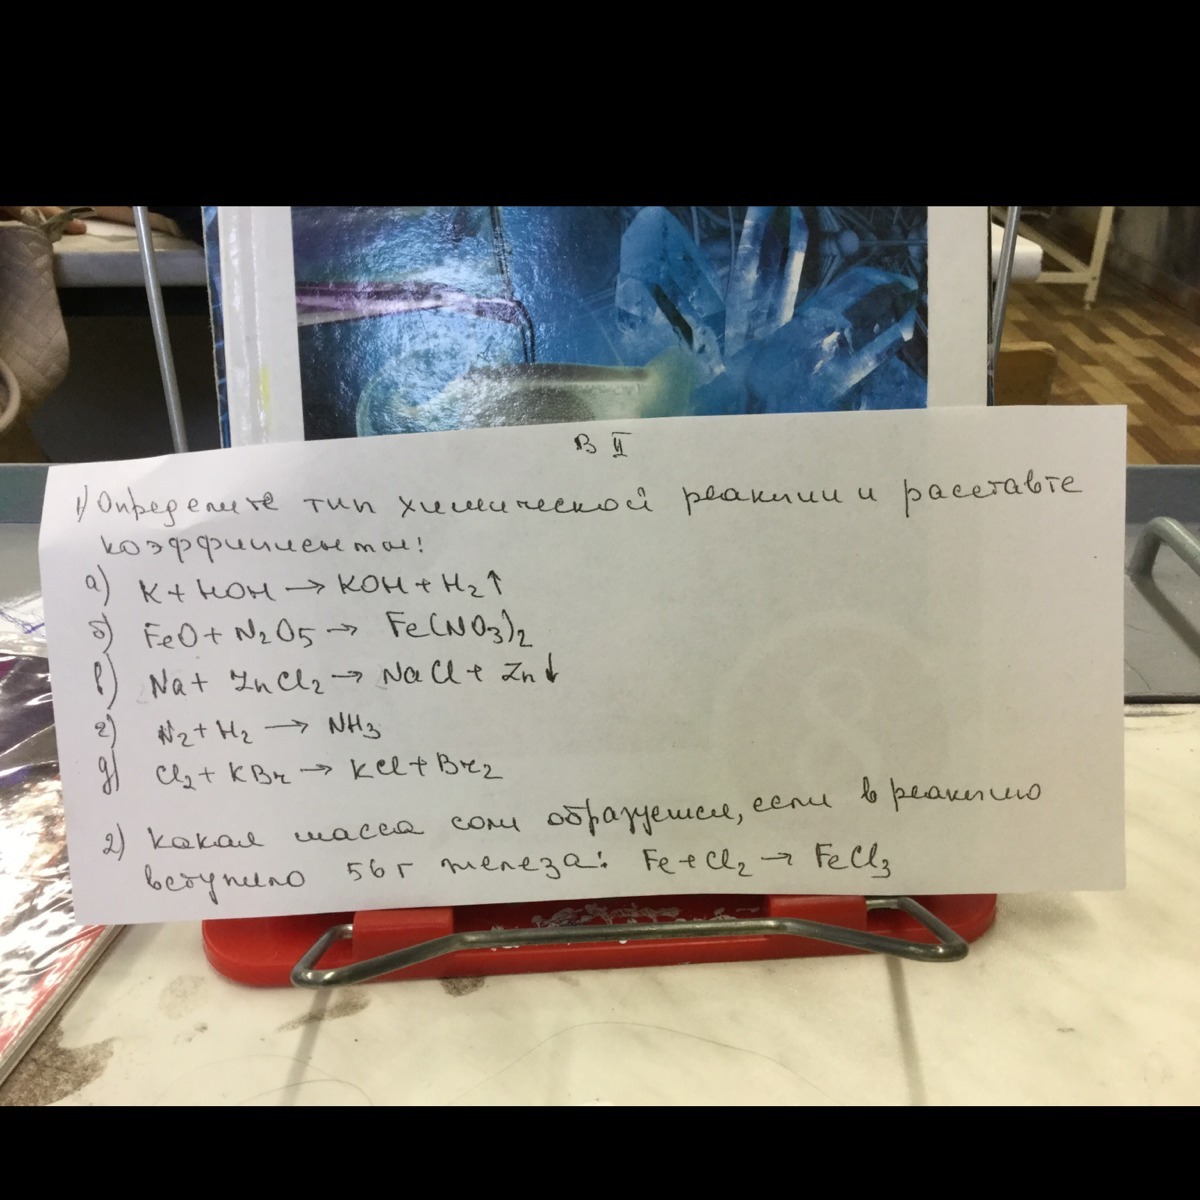 В II
1) Определите тип химической реакции и расставте
коэффициенты!
а) K + HOH → KOH + H₂↑
б) FeO + N₂O₅ → Fe(NO₃)₂
в) Na + ZnCl₂ → NaCl + Zn↓
г) N₂ + H₂ → NH₃
д) Cl₂ + KBr → KCl + Br₂
2) Какая масса соли образуется, если в реакцию
вступило 56 г железа: Fe + Cl₂ → FeCl₃